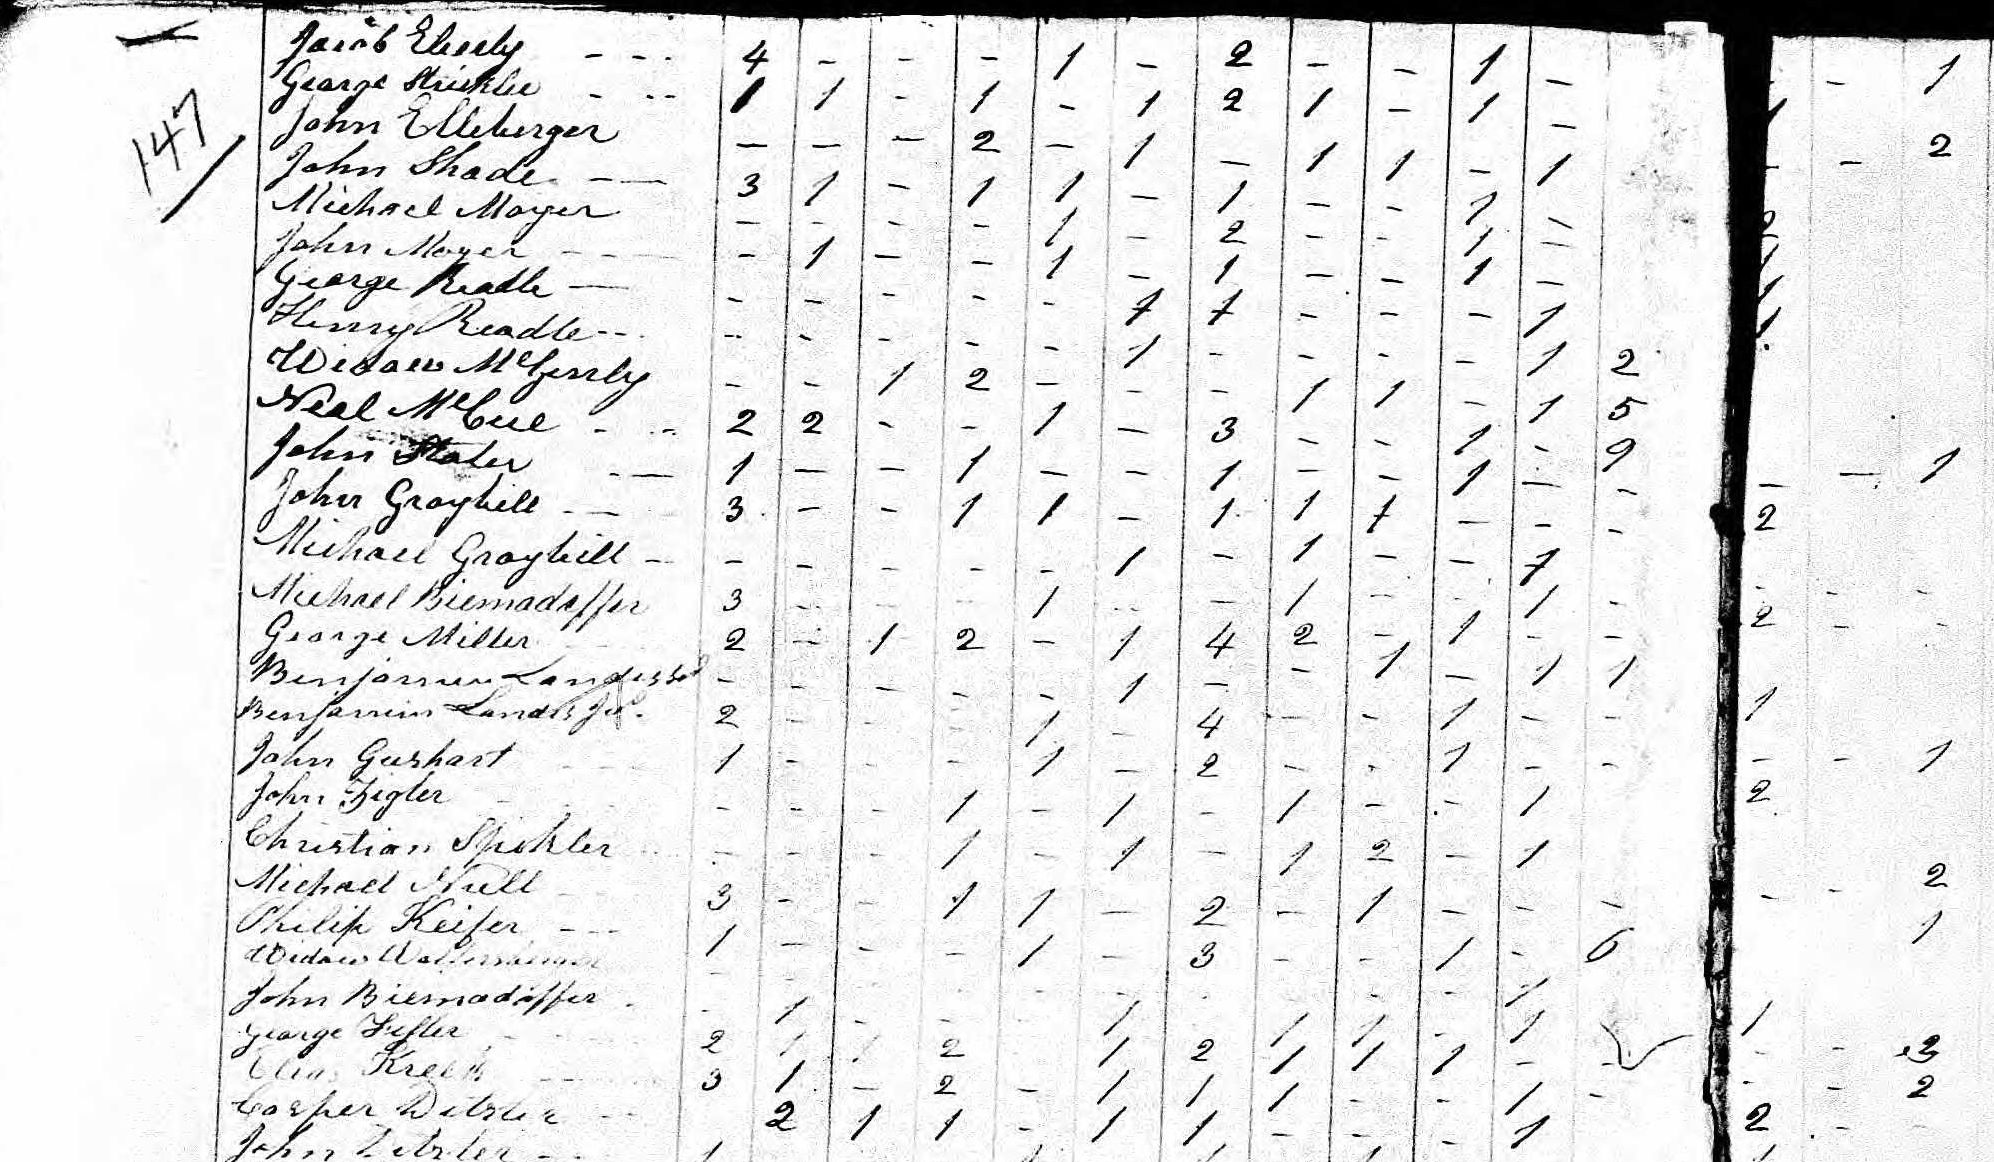 Jacob Eberly - - - 4 - - - 1 - 2 - - 1 - - - 1
George Strickler - - - 1 1 - 1 - 1 2 1 - 1 - 1
147 John Elleberger - - - 2 - 1 - 1 1 - 1 - - 2
John Shade - - 3 1 - 1 1 - 1 - - 1 -
Michael Moyer - - - - 1 - 2 - - 1 -
John Moyer - - - - 1 - - 1 - 1 - - 1 -
George Readle - - - - - - 1 1 - - - 1
Henry Readle - - - - - - - 1 - - - - 1 2
Widow McGinly - - 1 2 - - - 1 1 - 1 5
Neal McCue - - - 2 2 - - 1 - 3 - - 1 - 9
John Stoler - - 1 - - 1 - - 1 - - 1 - - - - 1
John Grayhill - - 3 - - 1 1 - 1 1 1 - - - 2
Michael Grayhill - - - - - - - 1 - 1 - - 1 - - -
Michael Biemadaffer 3 - - - 1 - - 1 - - 1 - 2 - -
George Miller 2 - 1 2 - 1 4 2 - 1 - -
Benjamin - - - - - 1 - - 1 - 1 1
Benjamin Landis Jr. 2 - - - 1 - 4 - - 1 - - 1
John Gushart 1 - - - 1 - 2 - - 1 - - - - 1
John Zigler - - - 1 - 1 - 1 - - 1 2
Christian Spickler - - - 1 - 1 - 1 2 - 1
Michael Null 3 - - 1 1 - 2 - 1 - - - - - 2
Philip Keifer - - - 1 - - - 1 - 3 - - 1 - 6 1
Widow - - - - - - - - - - 1
John Biemadaffer - 1 - - - 1 - 1 1 - 1 1
George 2 1 1 2 1 2 1 1 1 - - - - 3
Kreek 3 1 - 2 - 1 1 1 - - 1 - - - 2
Casper Ditzler - - 2 1 1 - 1 1 - - - 1 2 - -
John Ditzler - -